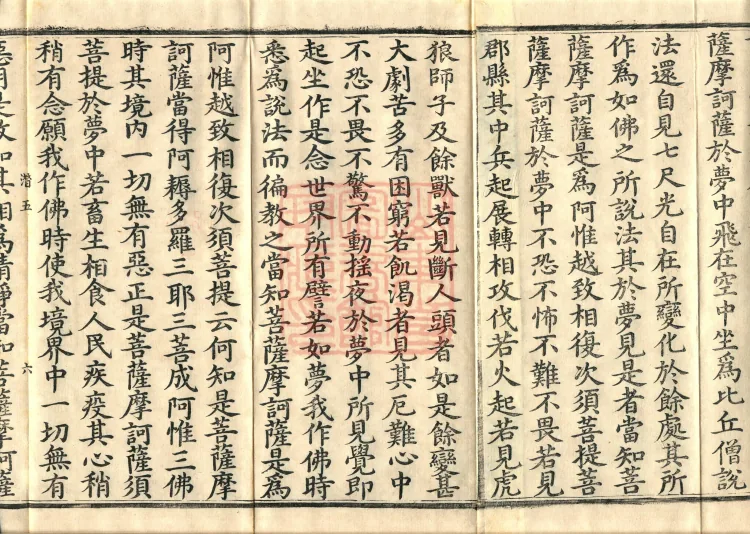 薩摩訶薩於夢中飛在空中坐為比丘僧說
法還自見七尺光自在所變化於餘處其所
作為如佛之所說法其於夢見是者當知菩
薩摩訶薩是為阿惟越致相復次須菩提菩
薩摩訶薩於夢中不恐不怖不難不畏若見
郡縣其中兵起展轉相攻伐若火起若見虎
狼師子及餘獸若見斷人頭者如是餘變甚
大劇苦多有困窮若飢渴者見其厄難心中
不恐不畏不驚不動搖夜於夢中所見覺即
起坐作是念世界所有譬若如夢我作佛時
悉為說法而徧教之當知菩薩摩訶薩是為
阿惟越致相復次須菩提云何知是菩薩摩
訶薩當得阿耨多羅三耶三菩成阿惟三佛
時其境內一切無有惡正是菩薩摩訶薩須
菩提於夢中若畜生相食人民疾疫其心稍
稍有念願我作佛時使我境界中一切無有
潜五 六
惡用是故知其相為清淨當知菩薩摩訶薩